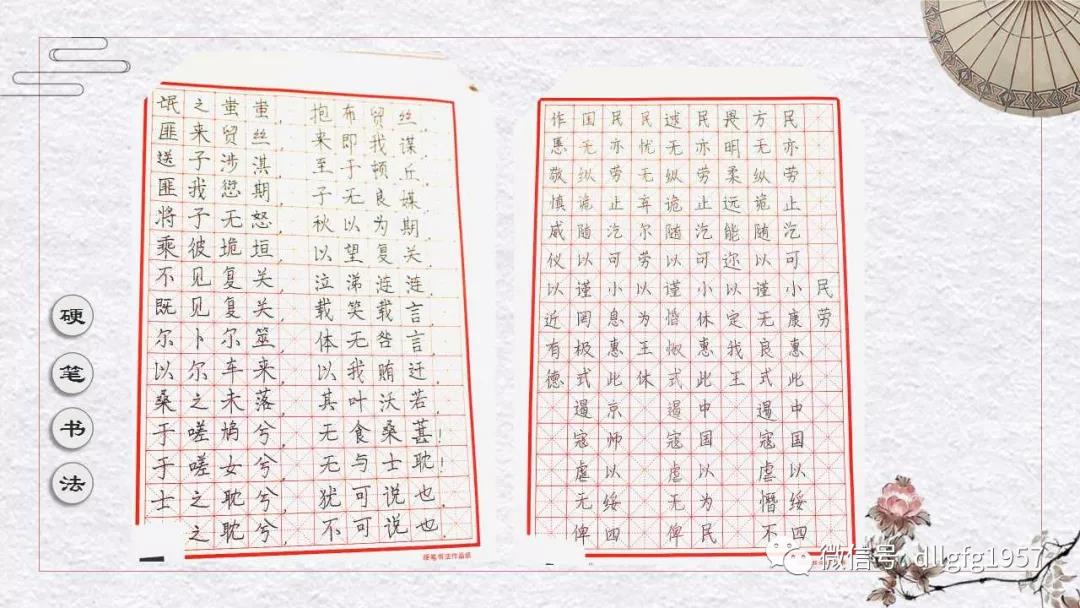 硬笔书法
氓之蚩蚩,抱布贸丝。
匪来贸丝,来即我谋。
送子涉淇,至于顿丘。
匪我愆期,子无良媒。
将子无怒,秋以为期。
乘彼垝垣,以望复关。
不见复关,泣涕涟涟。
既见复关,载笑载言。
尔卜尔筮,体无咎言。
以尔车来,以我贿迁。
桑之未落,其叶沃若。
于嗟鸠兮,无食桑葚!
于嗟女兮,无与士耽!
士之耽兮,犹可说也。
之耽兮,不可说也。
硬笔书法作品纸
民劳
民亦劳止汔可小康惠此中国以绥四
方无纵诡随以谨无良式遏寇虐憯不
畏明柔远能迩以定我王
民亦劳止汔可小休惠此中国以为民
逑无纵诡随以谨惛怓式遏寇虐无俾
民忧无弃尔劳以为王休
民亦劳止汔可小息惠此京师以绥四
国无纵诡随以谨罔极式遏寇虐无俾
作慝敬慎威仪以近有德
微信号: dllgfg1957